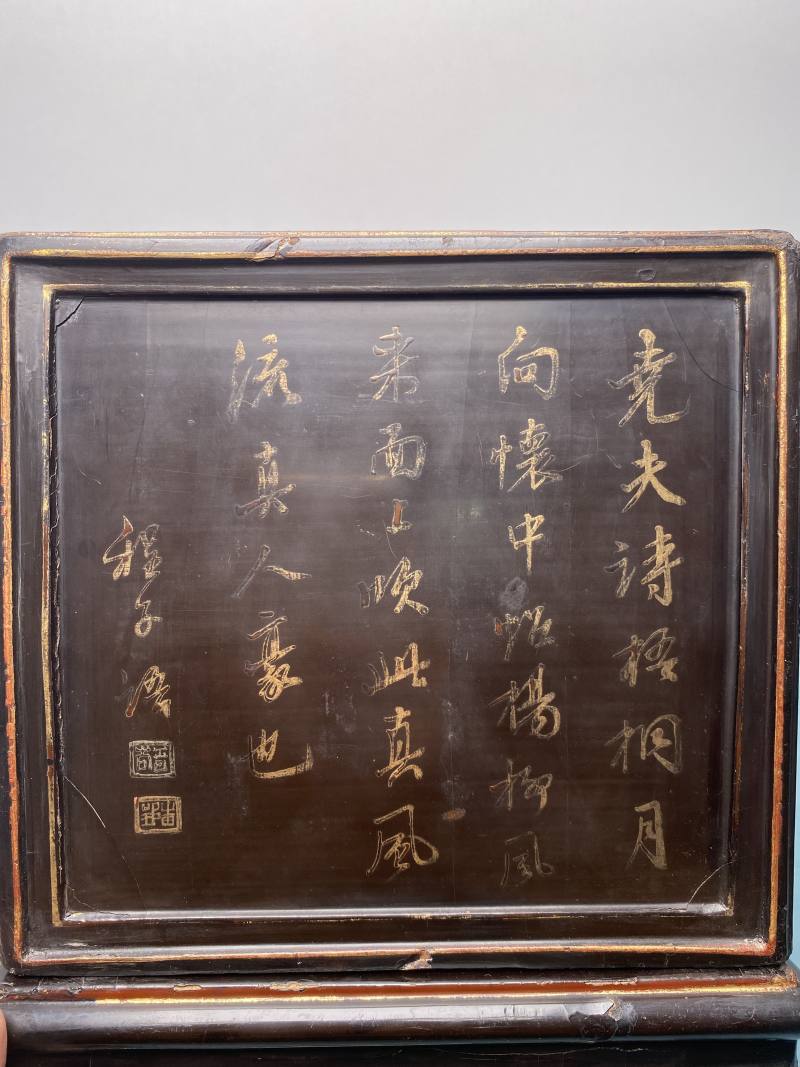 堯夫詩梧桐月
向懷中照楊柳風
來面上吹此真風
流真人豪也
程子語